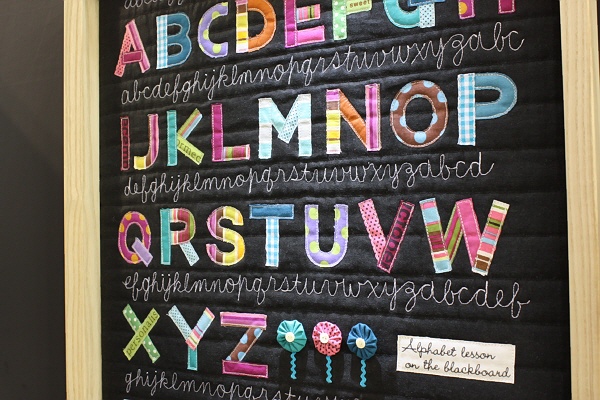 ABCDEFGH
sweet
abcdefghijklmnopqrstuvwxyzabc
IJKLMNOP
defghijklmnopqrstuvwxyzabcd
QRSTUVW
efghijklmnopqrstuvwxyzabcdef
XYZ
personals
Alphabet lesson
on the blackboard
ghijklmnopqrst